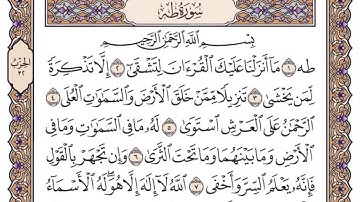 سُورَةُ طه
بِسْمِ ٱللَّهِ ٱلرَّحْمَٰنِ ٱلرَّحِيمِ
طه ١ مَآ أَنزَلْنَا عَلَيْكَ ٱلْقُرْءَانَ لِتَشْقَىٰٓ ٢ إِلَّا تَذْكِرَةً
لِّمَن يَخْشَىٰ ٣ تَنزِيلًا مِّمَّنْ خَلَقَ ٱلْأَرْضَ وَٱلسَّمَٰوَٰتِ ٱلْعُلَى ٤
ٱلرَّحْمَٰنُ عَلَى ٱلْعَرْشِ ٱسْتَوَىٰ ٥ لَهُۥ مَا فِى ٱلسَّمَٰوَٰتِ وَمَا فِى
ٱلْأَرْضِ وَمَا بَيْنَهُمَا وَمَا تَحْتَ ٱلثَّرَىٰ ٦ وَإِن تَجْهَرْ بِٱلْقَوْلِ
فَإِنَّهُۥ يَعْلَمُ ٱلسِّرَّ وَأَخْفَى ٧ ٱللَّهُ لَآ إِلَٰهَ إِلَّا هُوَ لَهُ ٱلْأَسْمَآءُ
الحزب
٣٢